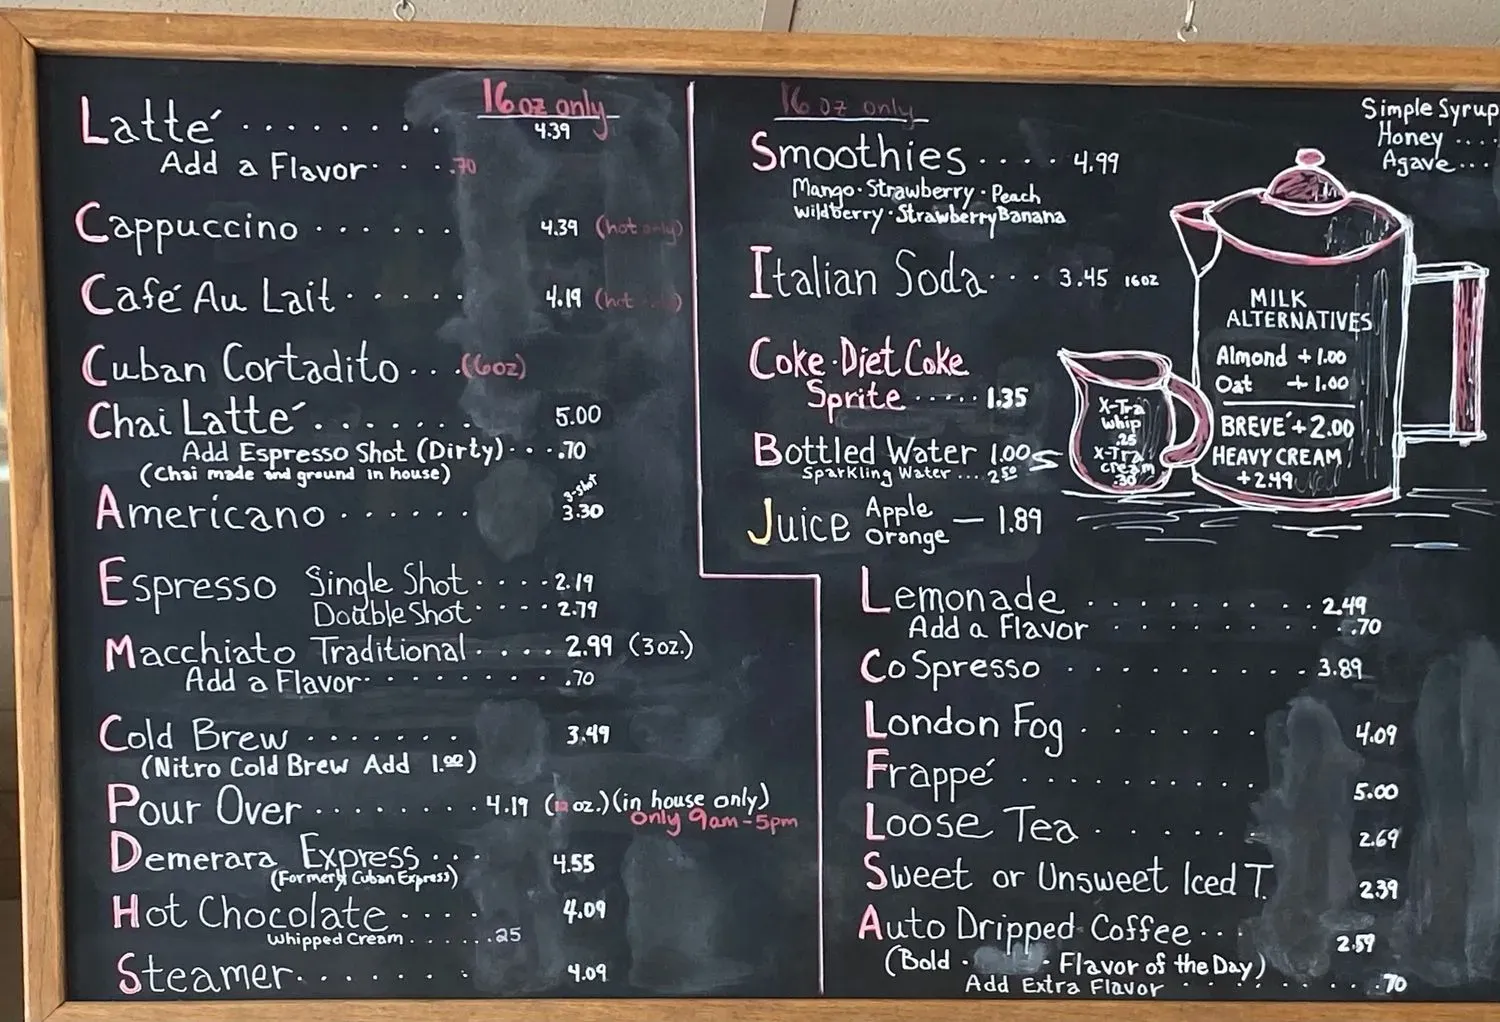 16 oz only
Latté . . . . . . . . 4.39
Add a Flavor . . . .70
Cappuccino . . . . . . 4.39 (hot only)
Café Au Lait . . . . . 4.19 (hot
Cuban Cortadito . . . (6oz)
Chai Latté . . . . . . . 5.00
Add Espresso Shot (Dirty) . . . .70
(Chai made and ground in house)
3-shot
Americano . . . . . . 3.30
Espresso Single Shot . . . . 2.19
Double Shot . . . . 2.79
Macchiato Traditional . . . . 2.99 (3oz.)
Add a Flavor . . . . . . . . .70
Cold Brew . . . . . . . 3.49
(Nitro Cold Brew Add 1.00)
Pour Over . . . . . . . . 4.19 (12 oz.) (in house only)
only 9am-5pm
Demerara Express . . . 4.55
(Formerly Cuban Express)
Hot Chocolate . . . . 4.09
Whipped Cream . . . . . . .25
Steamer . . . . . . . 4.09
16 oz only
Smoothies . . . . 4.99
Mango · Strawberry · Peach
Wildberry · Strawberry Banana
Italian Soda . . . 3.45 16oz
Coke · Diet Coke
Sprite . . . . . 1.35
Bottled Water 1.00
Sparkling Water .... 2.50
Juice Apple
Orange — 1.89
Simple Syrup
Honey ....
Agave ...
MILK
ALTERNATIVES
Almond +1.00
Oat +1.00
BREVÉ +2.00
HEAVY CREAM
+2.49
X-Tra
Whip
.25
X-Tra
cream
.30
Lemonade . . . . . . . . . 2.49
Add a Flavor . . . . . . . . .70
CoSpresso . . . . . . . . . 3.89
London Fog . . . . . . 4.09
Frappé . . . . . . . . . 5.00
Loose Tea . . . . . . 2.69
Sweet or Unsweet Iced T. 2.39
Auto Dripped Coffee . . . 2.59
(Bold · · Flavor of the Day)
Add Extra Flavor . . . . . . . . .70